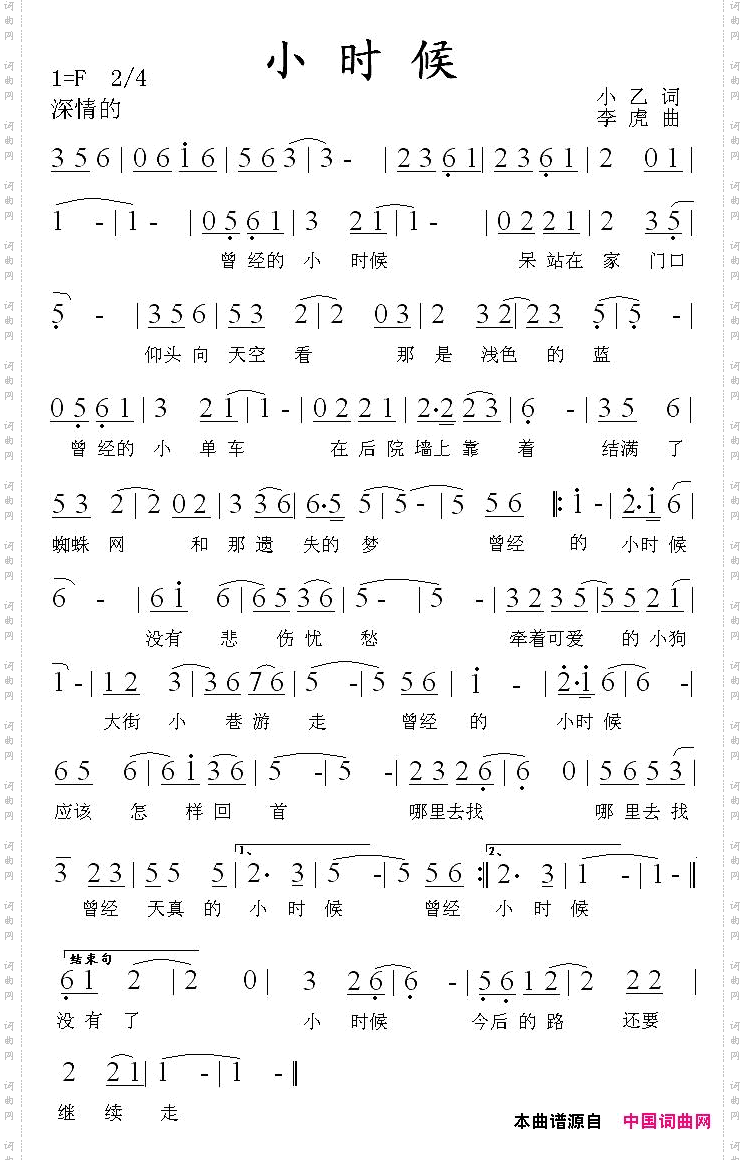 小时候
1=F 2/4
深情的
小乙词
李虎曲
3 5 6 | 0 6 i 6 | 5 6 3 | 3 - | 2 3 6 1 | 2 3 6 1 | 2 0 1 |
1 - | 1 - | 0 5 6 1 | 3 2 1 | 1 - | 0 2 2 1 | 2 3 5 |
曾经的小时候 呆站在家门口
5 - | 3 5 6 | 5 3 2 | 2 0 3 | 3 2 2 3 | 5 5 - |
仰头向天空看 那是浅色的蓝
0 5 6 1 | 3 2 1 | 1 - | 0 2 2 1 | 2·2 2 3 | 6 - | 3 5 6 |
曾经的小单车 在后院墙上靠着 结满了
5 3 2 | 2 0 2 | 3 3 6 | 6·5 5 | 5 - | 5 5 6 ‖: i - | 2·i 6 |
蜘蛛网 和那遗失的梦 曾经的小时候
6 - | 6 i 6 | 6 5 3 6 | 5 - | 5 - | 3 2 3 5 | 5 5 2 1 |
没有悲伤忧愁 牵着可爱的小狗
1 - | 1 2 3 | 3 6 7 6 | 5 - | 5 5 6 | i - | 2·i 6 | 6 - |
大街小巷游走 曾经的小时候
6 5 6 | 6 i 3 6 | 5 - | 5 - | 2 3 2 6 | 6 0 | 5 6 5 3 |
应该怎样回首 哪里去找 哪里去找
1、 2、
3 2 3 | 5 5 5 | 2· 3 | 5 - | 5 5 6 :‖ 2· 3 | 1 - | 1 - ‖
曾经天真的小时候 曾经小时候
结束句
6 1 2 | 2 0 | 3 2 6 | 6 - | 5 6 1 2 | 2 2 |
没有了 小时候 今后的路还要
2 2 1 | 1 - | 1 - ‖
继续走
本曲谱源自 中国词曲网
词曲网